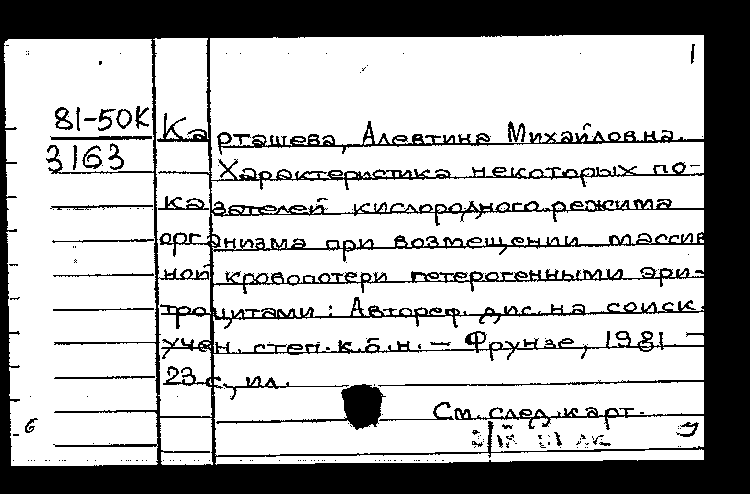 1
81-50К
3163
Карташева, Алевтина Михайловна.
Характеристика некоторых по-
казателей кислородного режима
организма при возмещении массив
ной кровопотери гетерогенными эри-
троцитами: Автореф. дис. на соиск.
учен. степ. к.б.н. – Фрунзе, 1981 –
23 с., ил.
См. след. карт.
6